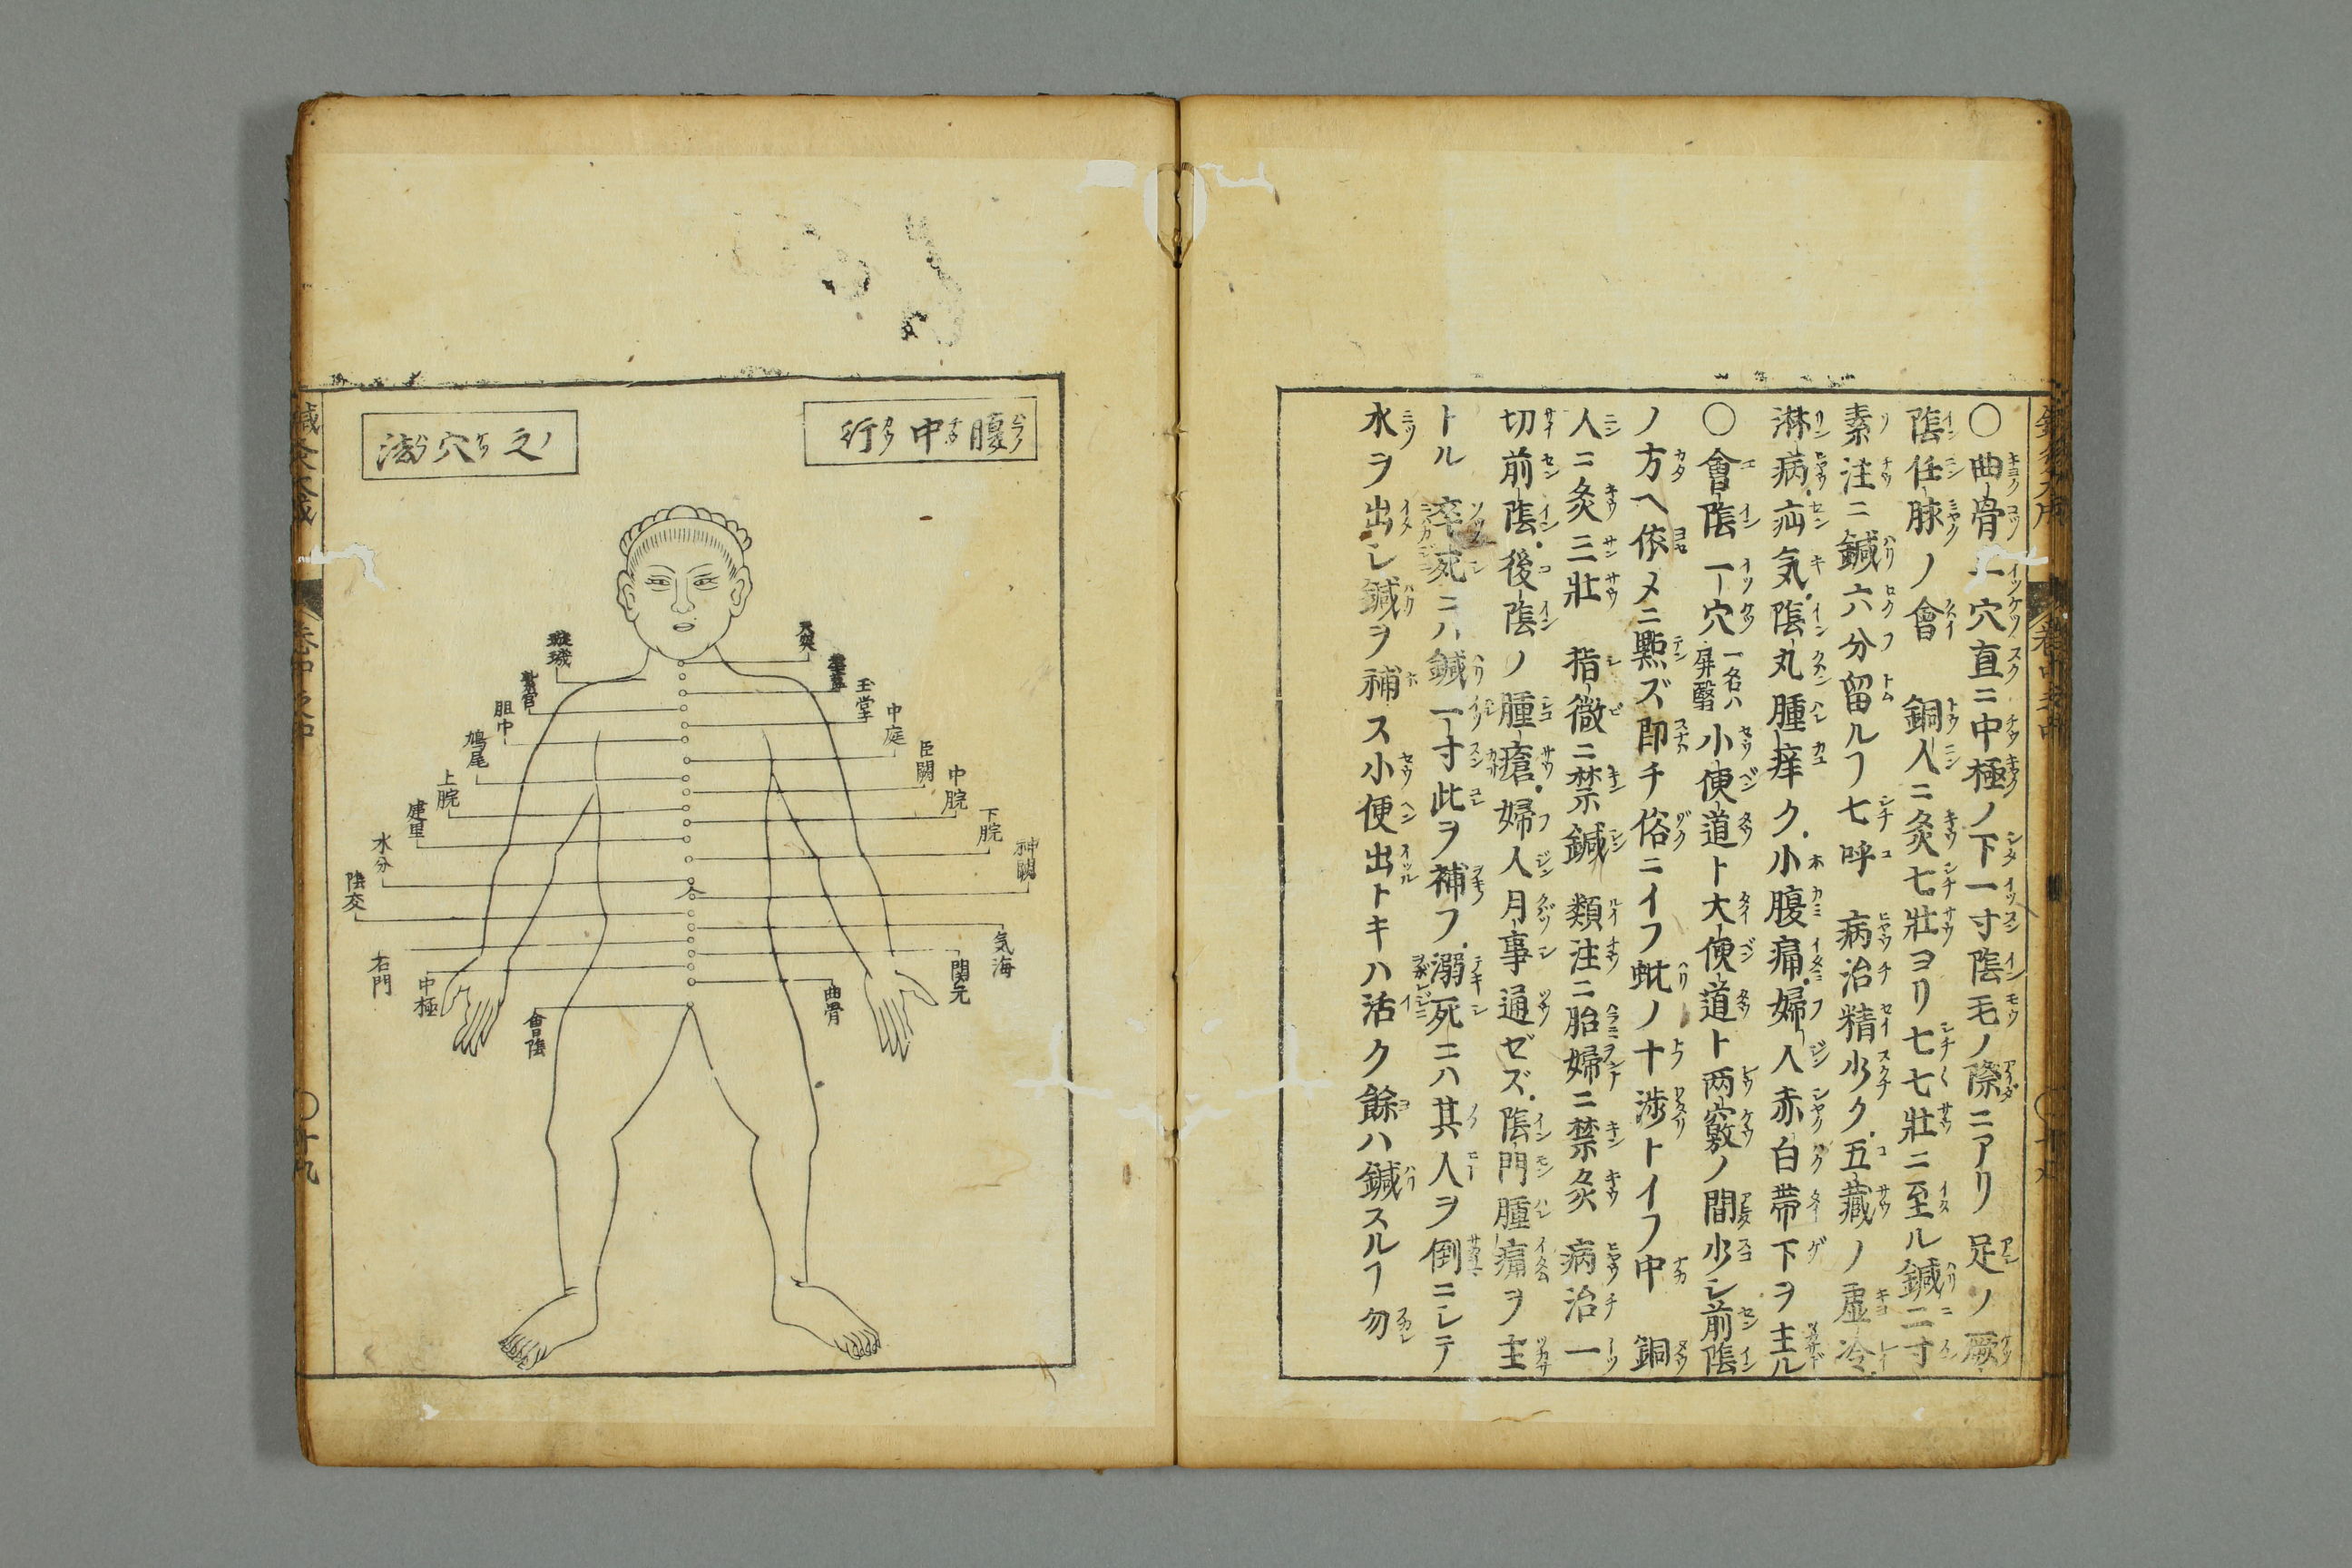 〇曲骨一穴直ニ中極ノ下一寸陰毛ノ際ニアリ 足ノ厥
陰任脉ノ會 銅人ニ灸七壯ヨリ七七壯ニ至ル鍼二寸
素注ニ鍼六分留ルフ七呼 病治精少ク五藏ノ虚冷
淋病疝気陰丸腫痒ク小腹痛婦人赤白帯下ヲ主ル
〇會陰一穴一名ハ屏翳小便道ト大便道ト両竅ノ間少シ前陰
ノ方ヘ依メニ㸃ズ即チ俗ニイフ蚍ノ十渉トイフ中 銅
人ニ灸三壯 指微ニ禁鍼 類注ニ胎婦ニ禁灸 病治一
切前陰後陰ノ腫瘡婦人月事通ゼズ陰門腫痛ヲ主
トル 卒死ニハ鍼一寸此ヲ補フ溺死ニハ其人ヲ倒ニシテ
水ヲ出シ鍼ヲ補ス小便出トキハ活ク餘ハ鍼スルフ勿
腹中行
之穴法
天突
璇璣
華蓋
紫宮
玉堂
胆中
中庭
鳩尾
臣闕
上脘
中脘
建里
下脘
水分
神闕
陰交
気海
石門
関元
中極
曲骨
會陰
〇十九